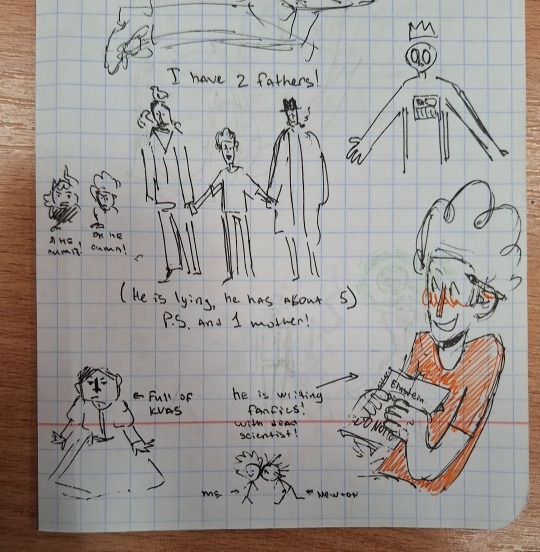 I have 2 fathers!
(He is lying, he has about 5)
P.S. And 1 mother!
← Full of
KVAS
he is writing
fanfics!
with dead
scientist!
Einstein
DO NOT
me →
← NEWTON